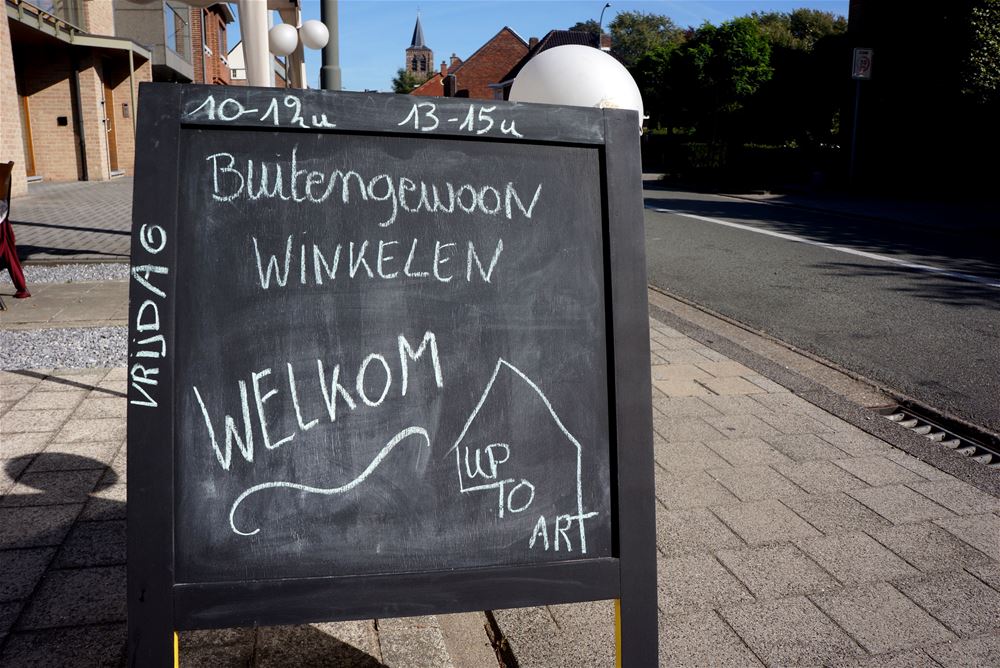 10-12u 13-15u
Buitengewoon
WINKELEN
VRIJDAG
WELKOM
UP
TO
ART